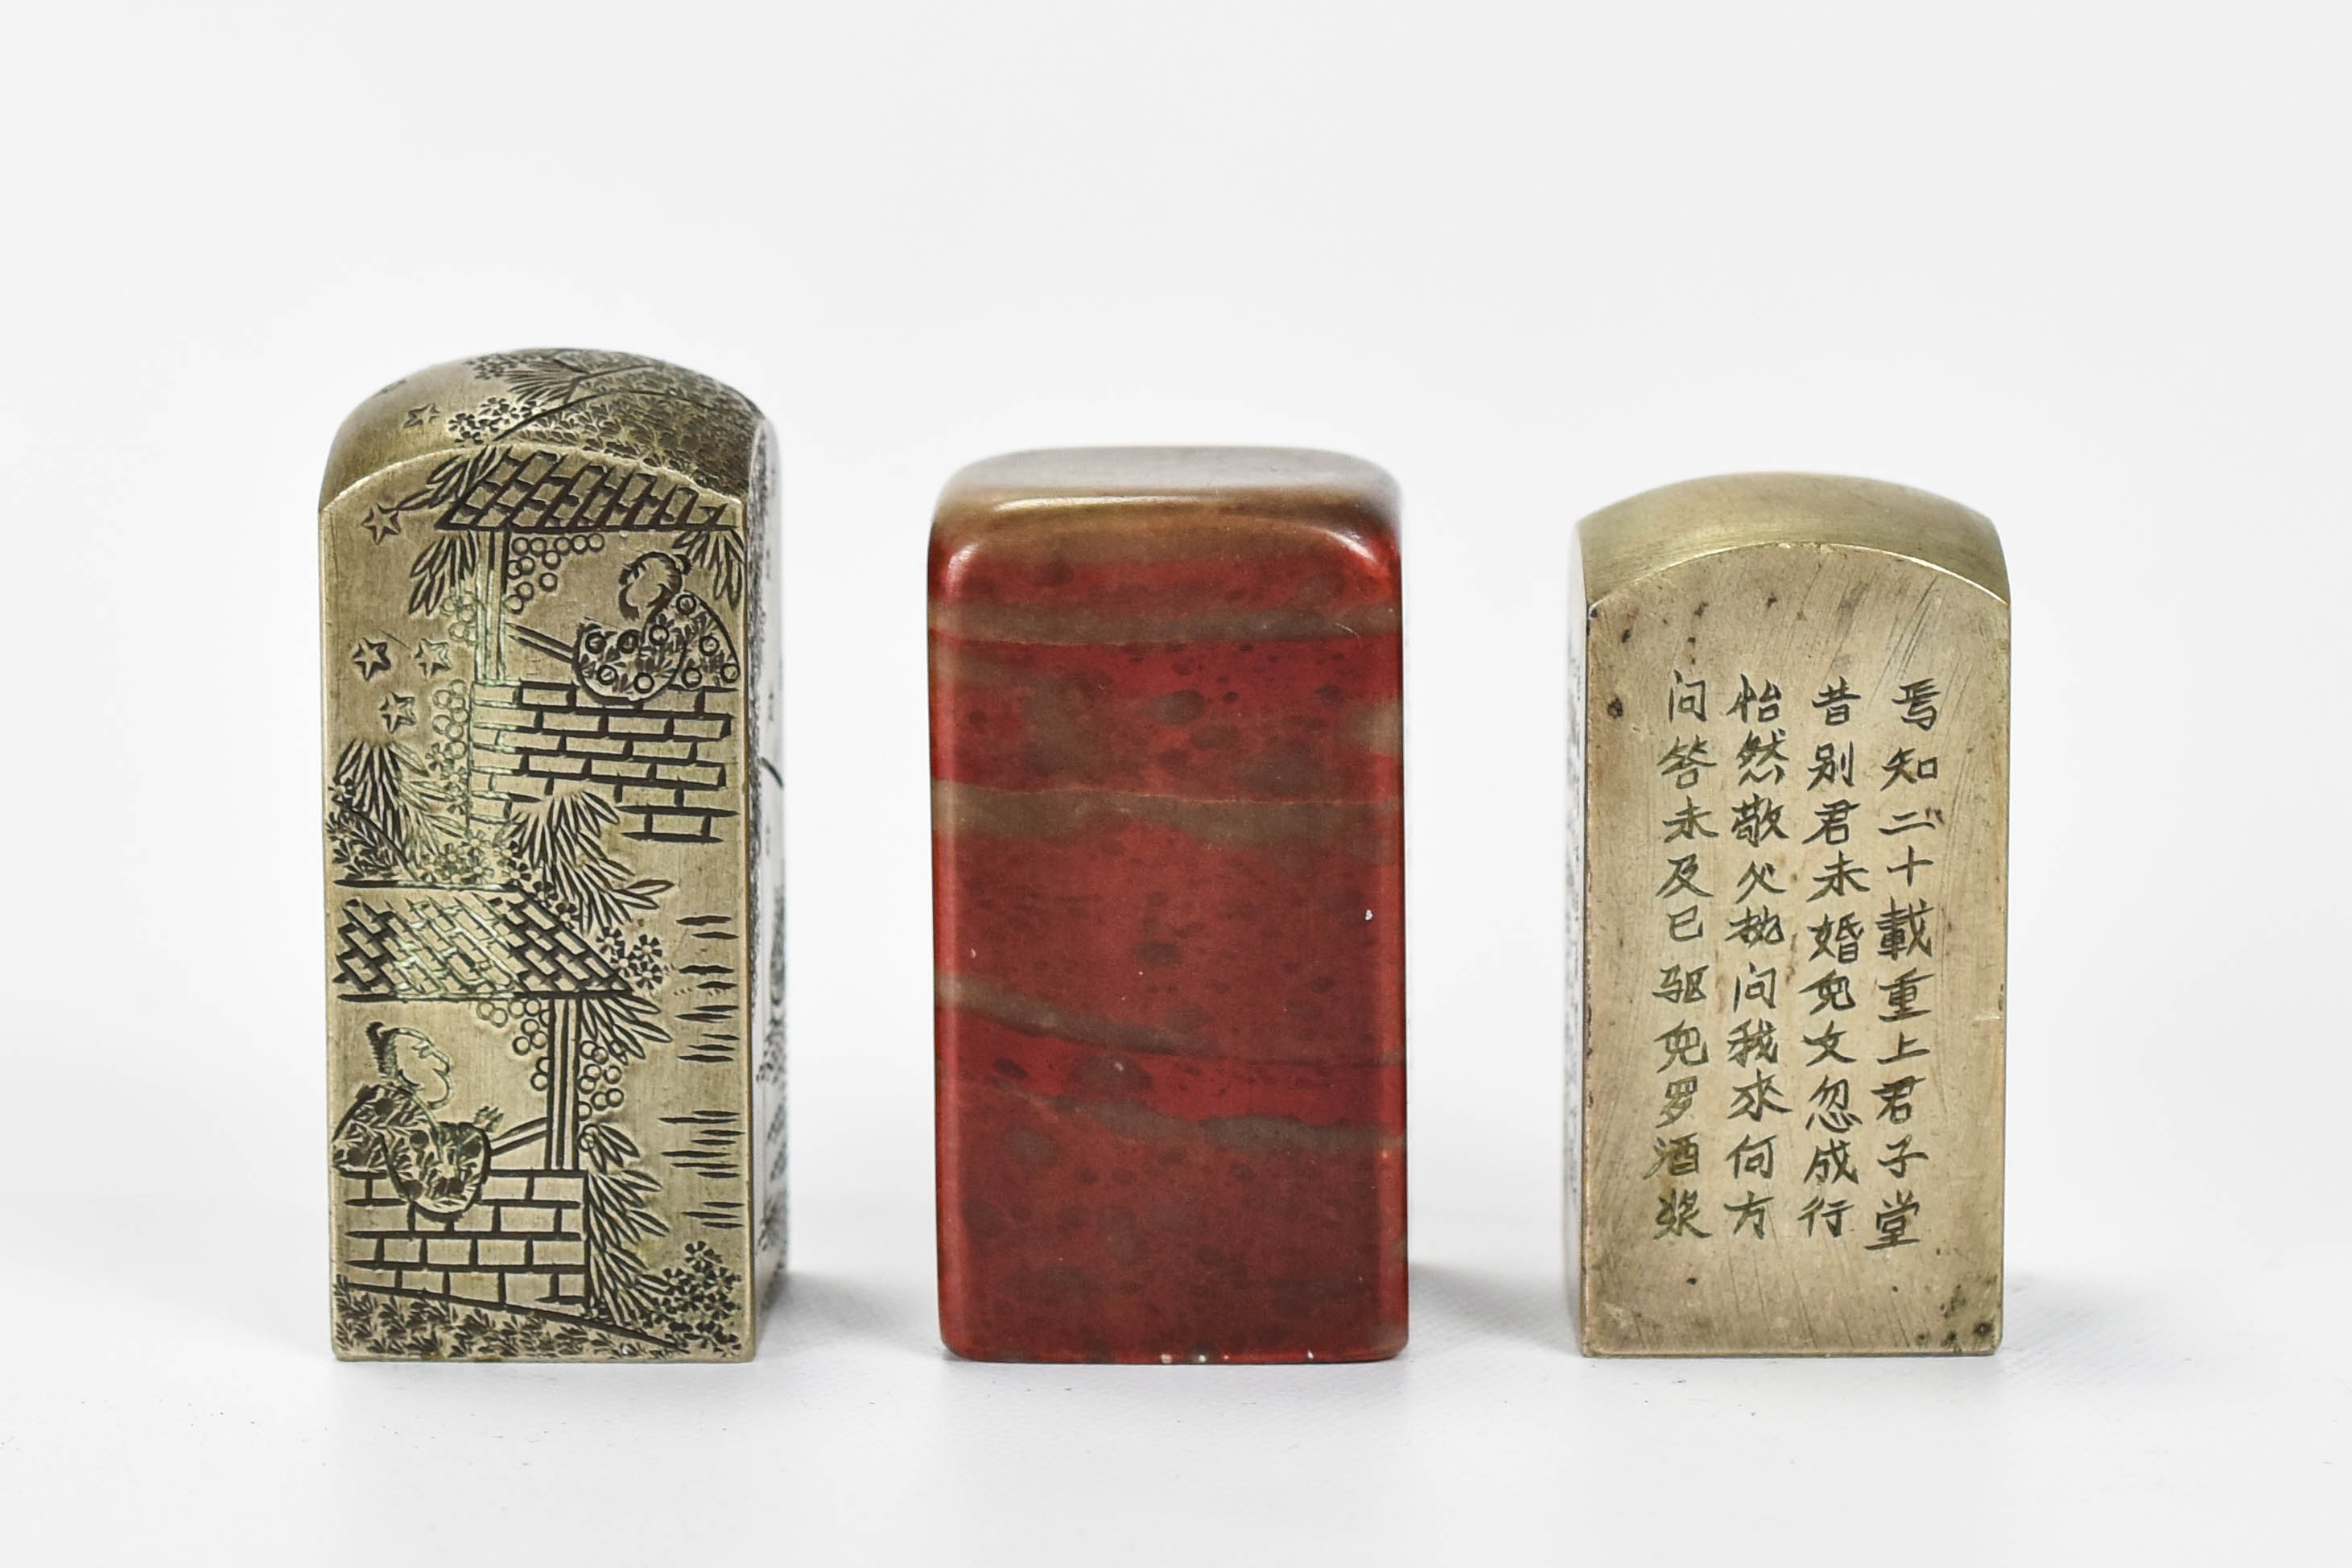 焉知二十載重上君子堂
昔别君未婚兒女忽成行
怡然敬父执问我來何方
问答未及已驱兒罗酒浆